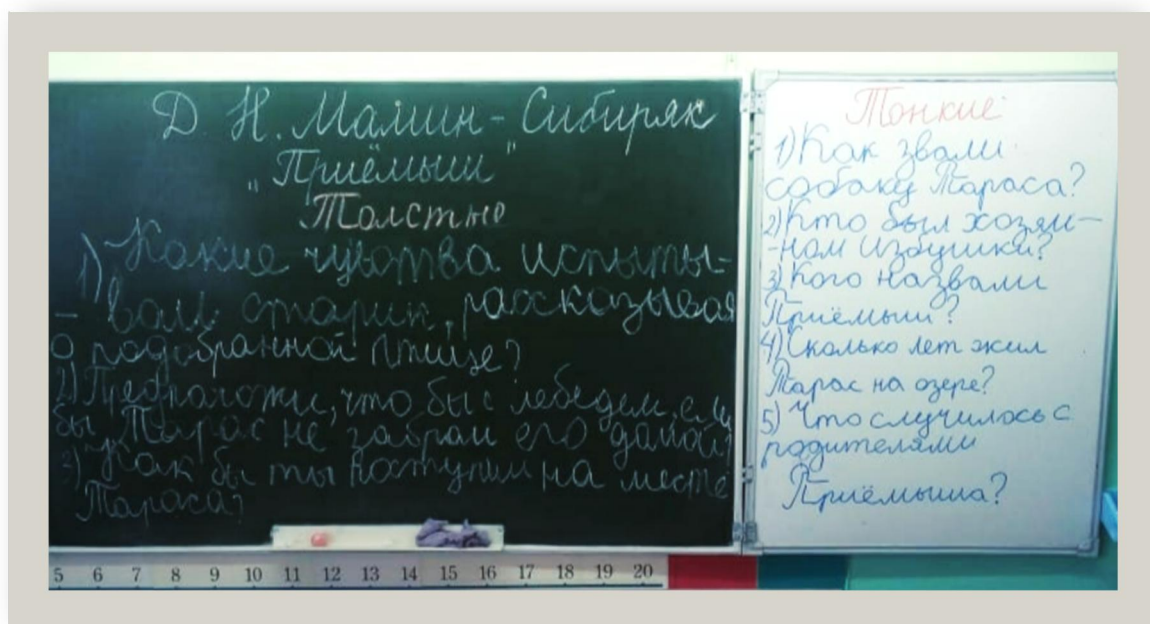 Д. Н. Мамин-Сибиряк
„Приёмыш"
Толстые
1) Какие чувства испыты-
- вал старик, рассказывая
о подобранной птице?
2) Предположи, что бы с лебедем, если
бы Тарас не забрал его домой?
3) Как бы ты поступил на месте
Тараса?
5 6 7 8 9 10 11 12 13 14 15 16 17 18 19 20
Тонкие
1) Как звали
собаку Тараса?
2) Кто был хозяи-
-ном избушки?
3) Кого назвали
Приёмыш?
4) Сколько лет жил
Тарас на озере?
5) Что случилось с
родителями
Приёмыша?